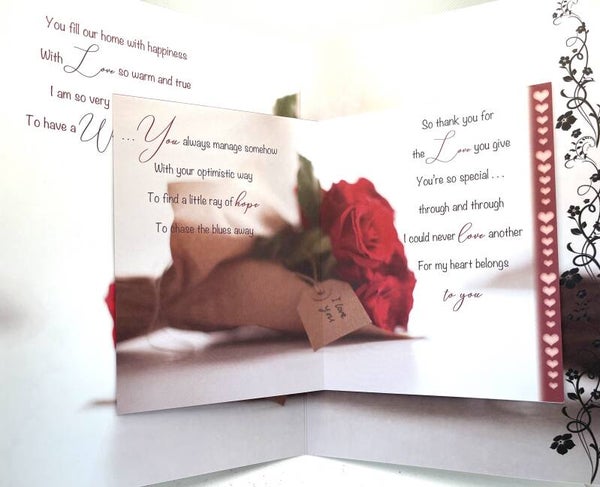 You fill our home with happiness
With Love so warm and true
I am so very
To have a W
... You always manage somehow
With your optimistic way
To find a little ray of hope
To chase the blues away
So thank you for
the Love you give
You're so special ...
through and through
I could never love another
For my heart belongs
to you
I love
you